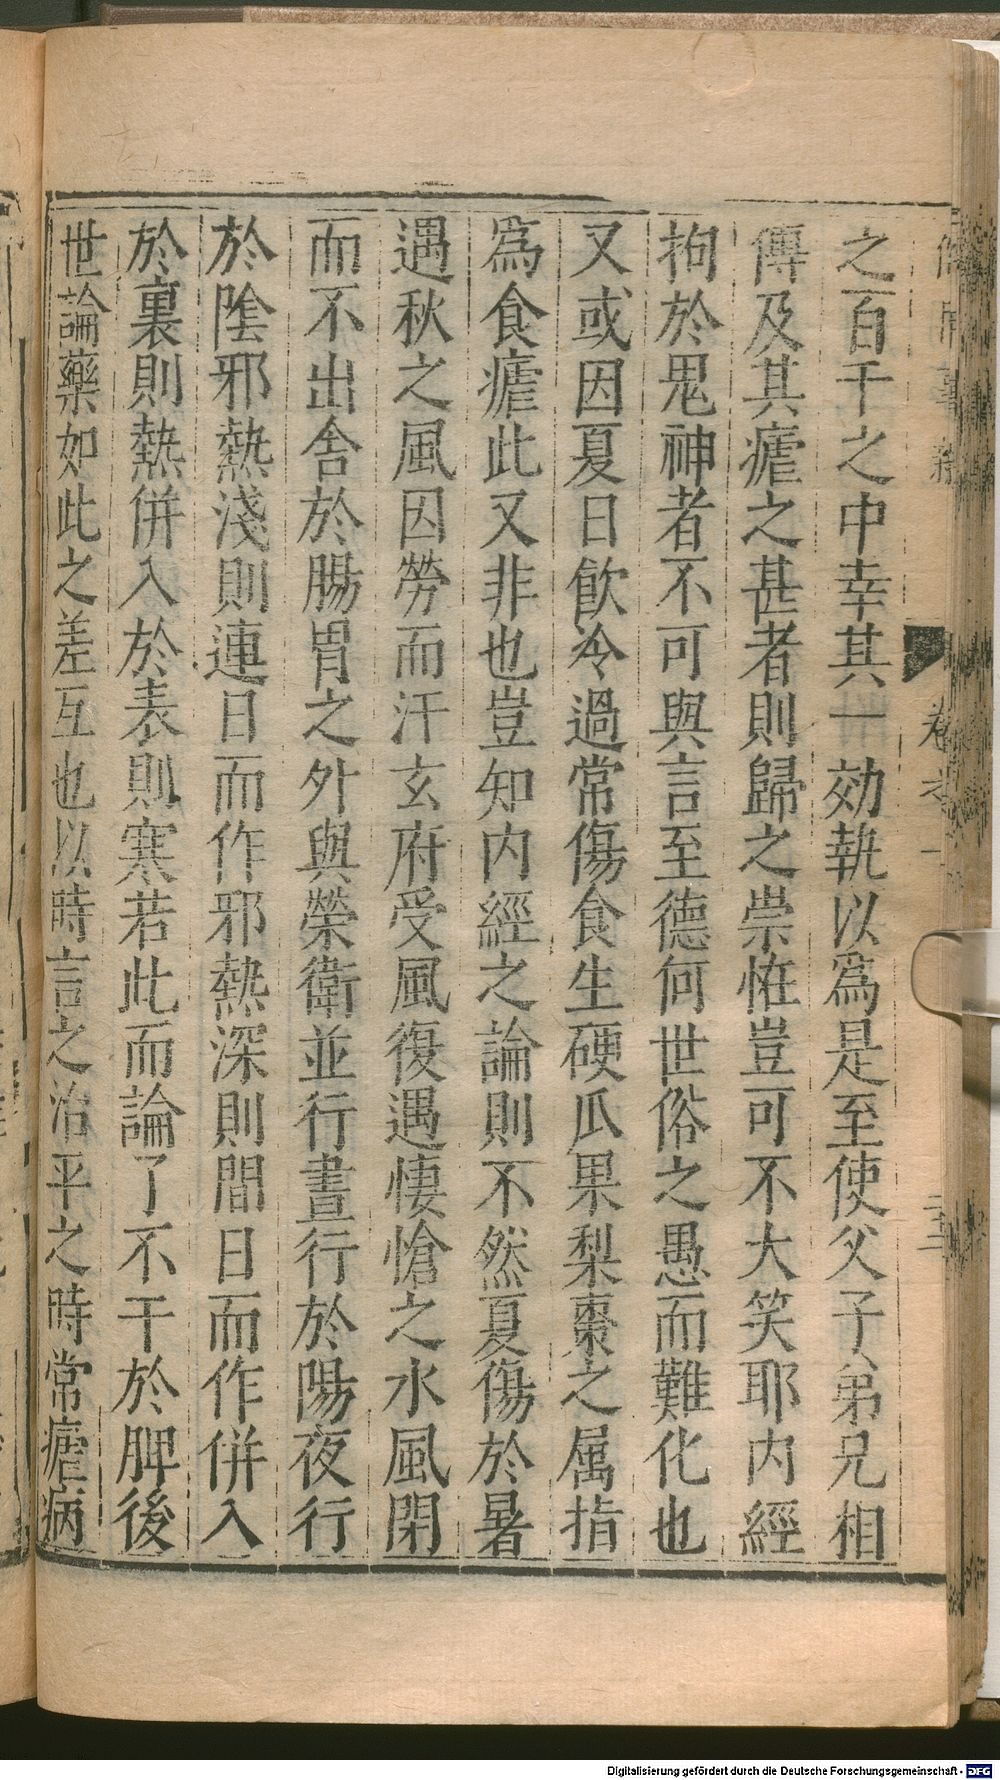 之百千之中幸其一効執以爲是至使父子弟兄相
傳及其瘧之甚者則歸之祟恠豈可不大笑耶内經
拘於鬼神者不可與言至德何世俗之愚而難化也
又或因夏日飲冷過常傷食生硬瓜果梨棗之属指
爲食瘧此又非也豈知内經之論則不然夏傷於暑
遇秋之風因勞而汗玄府受風復遇悽愴之水風閉
而不出舍於腸胃之外與榮衛並行晝行於陽夜行
於隂邪熱淺則連日而作邪熱深則間日而作併入
於裏則熱併入於表則寒若此而論了不干於脾後
世論藥如此之差互也以時言之治平之時常瘧病
Digitalisierung gefördert durch die Deutsche Forschungsgemeinschaft - DFG